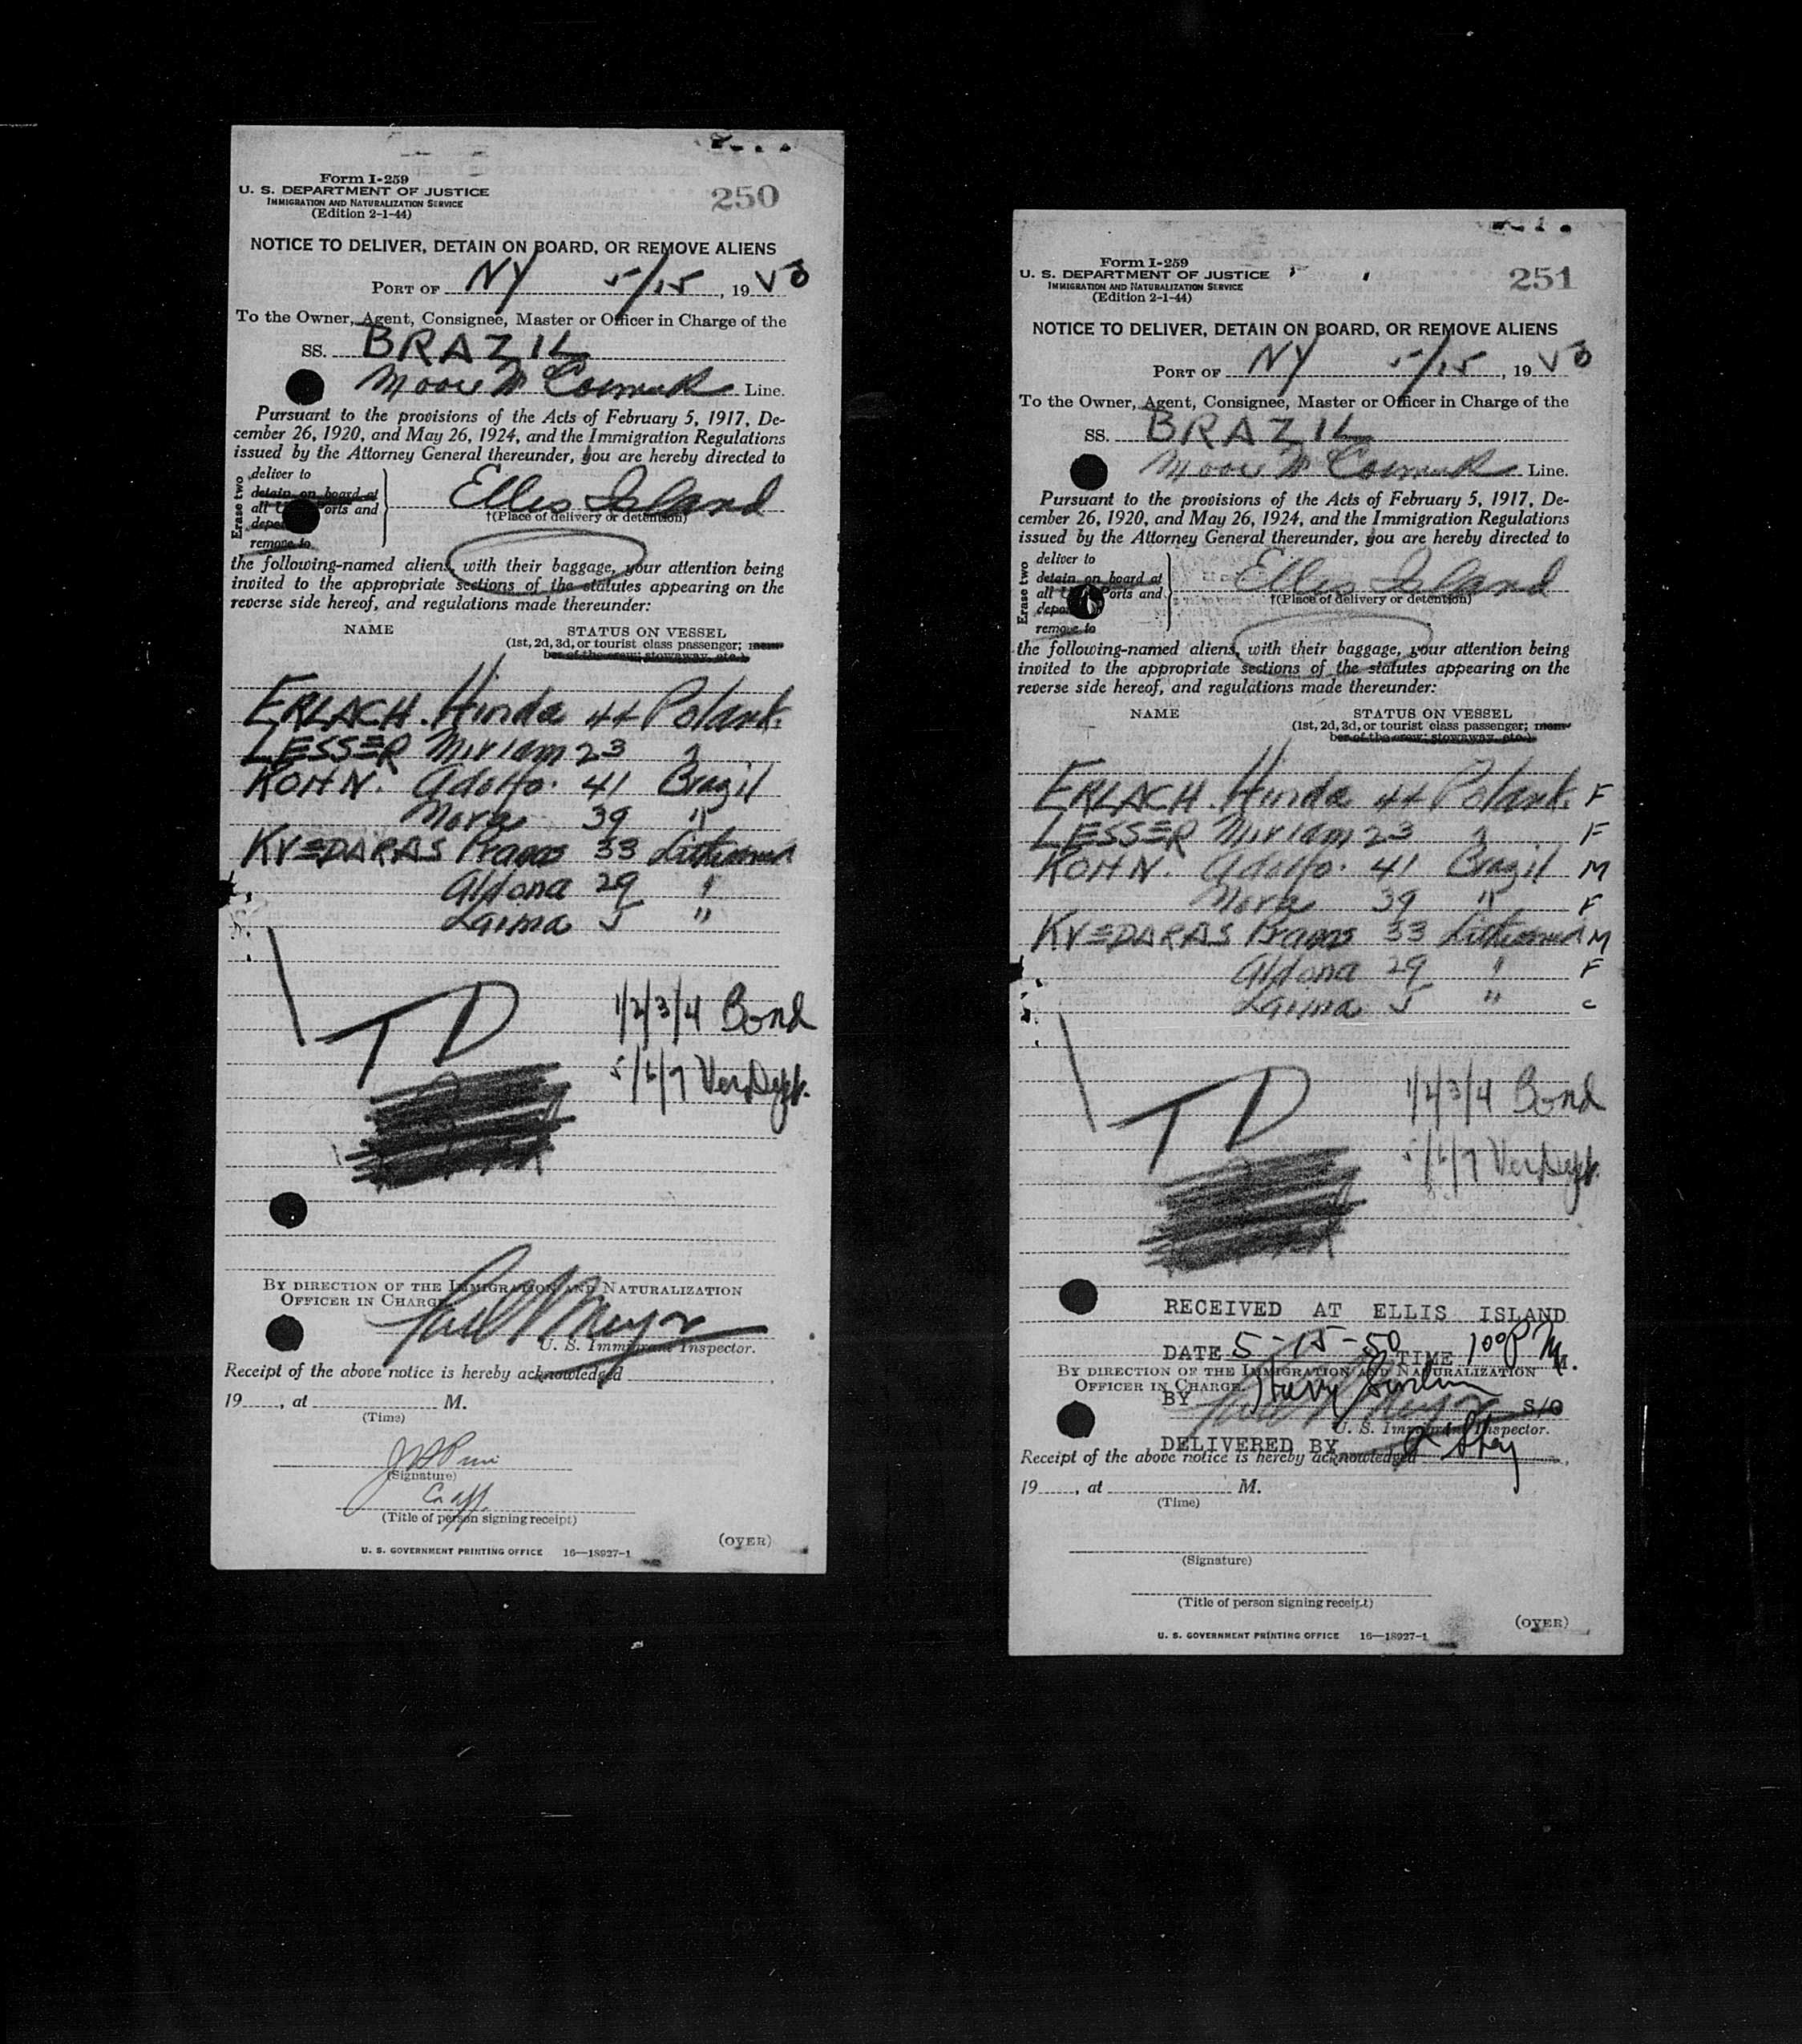 Form I-259
U. S. DEPARTMENT OF JUSTICE
IMMIGRATION AND NATURALIZATION SERVICE
(Edition 2-1-44)
250
NOTICE TO DELIVER, DETAIN ON BOARD, OR REMOVE ALIENS
PORT OF NY 5/15, 1950
To the Owner, Agent, Consignee, Master or Officer in Charge of the
SS. BRAZIL
Moore McCormack Line.
Pursuant to the provisions of the Acts of February 5, 1917, De-
cember 26, 1920, and May 26, 1924, and the Immigration Regulations
issued by the Attorney General thereunder, you are hereby directed to
Erase two
deliver to
detain on board at
all U orts and
depo
remove to
Ellis Island
†(Place of delivery or detention)
the following-named aliens, with their baggage, your attention being
invited to the appropriate sections of the statutes appearing on the
reverse side hereof, and regulations made thereunder:
NAME STATUS ON VESSEL
(1st, 2d, 3d, or tourist class passenger; mem-
ber of the crew; stowaway, etc.)
ERLACH. Hinda 44 Poland.
LESSER Miriam 23
KOHN. Adolfo. 41 Brazil
Nora 39 "
KVEDARAS Pranas 33 Lithuania
Aldona 29 "
Laima 5 "
TD
1/2/3/4 Bond
5/6/7 Ver. Dept.
BY DIRECTION OF THE IMMIGRATION AND NATURALIZATION
OFFICER IN CHARGE.
U. S. Immigrant Inspector.
Receipt of the above notice is hereby acknowledged
19, at M.
(Time)
(Signature)
(Title of person signing receipt)
(OVER)
U. S. GOVERNMENT PRINTING OFFICE 16—18927-1
Form I-259
U. S. DEPARTMENT OF JUSTICE
IMMIGRATION AND NATURALIZATION SERVICE
(Edition 2-1-44)
251
NOTICE TO DELIVER, DETAIN ON BOARD, OR REMOVE ALIENS
PORT OF NY 5/15, 1950
To the Owner, Agent, Consignee, Master or Officer in Charge of the
SS. BRAZIL
Moore McCormack Line.
Pursuant to the provisions of the Acts of February 5, 1917, De-
cember 26, 1920, and May 26, 1924, and the Immigration Regulations
issued by the Attorney General thereunder, you are hereby directed to
Erase two
deliver to
detain on board at
all U Ports and
depo
remove to
Ellis Island
†(Place of delivery or detention)
the following-named aliens, with their baggage, your attention being
invited to the appropriate sections of the statutes appearing on the
reverse side hereof, and regulations made thereunder:
NAME STATUS ON VESSEL
(1st, 2d, 3d, or tourist class passenger; mem-
ber of the crew; stowaway, etc.)
ERLACH. Hinda 44 Poland. F
LESSER Miriam 23 F
KOHN. Adolfo. 41 Brazil M
Nora 39 " F
KVEDARAS Pranas 33 Lithuania M
Aldona 29 " F
Laima 5 " C
TD
1/2/3/4 Bond
5/6/7 Ver. Dept.
RECEIVED AT ELLIS ISLAND
DATE 5-15-50 TIME 1 00 P M.
BY DIRECTION OF THE IMMIGRATION AND NATURALIZATION
OFFICER IN CHARGE.
BY Harry S/O
U. S. Immigrant Inspector.
DELIVERED BY
Receipt of the above notice is hereby acknowledged
19, at M.
(Time)
(Signature)
(Title of person signing receipt)
(OVER)
U. S. GOVERNMENT PRINTING OFFICE 16—18927-1